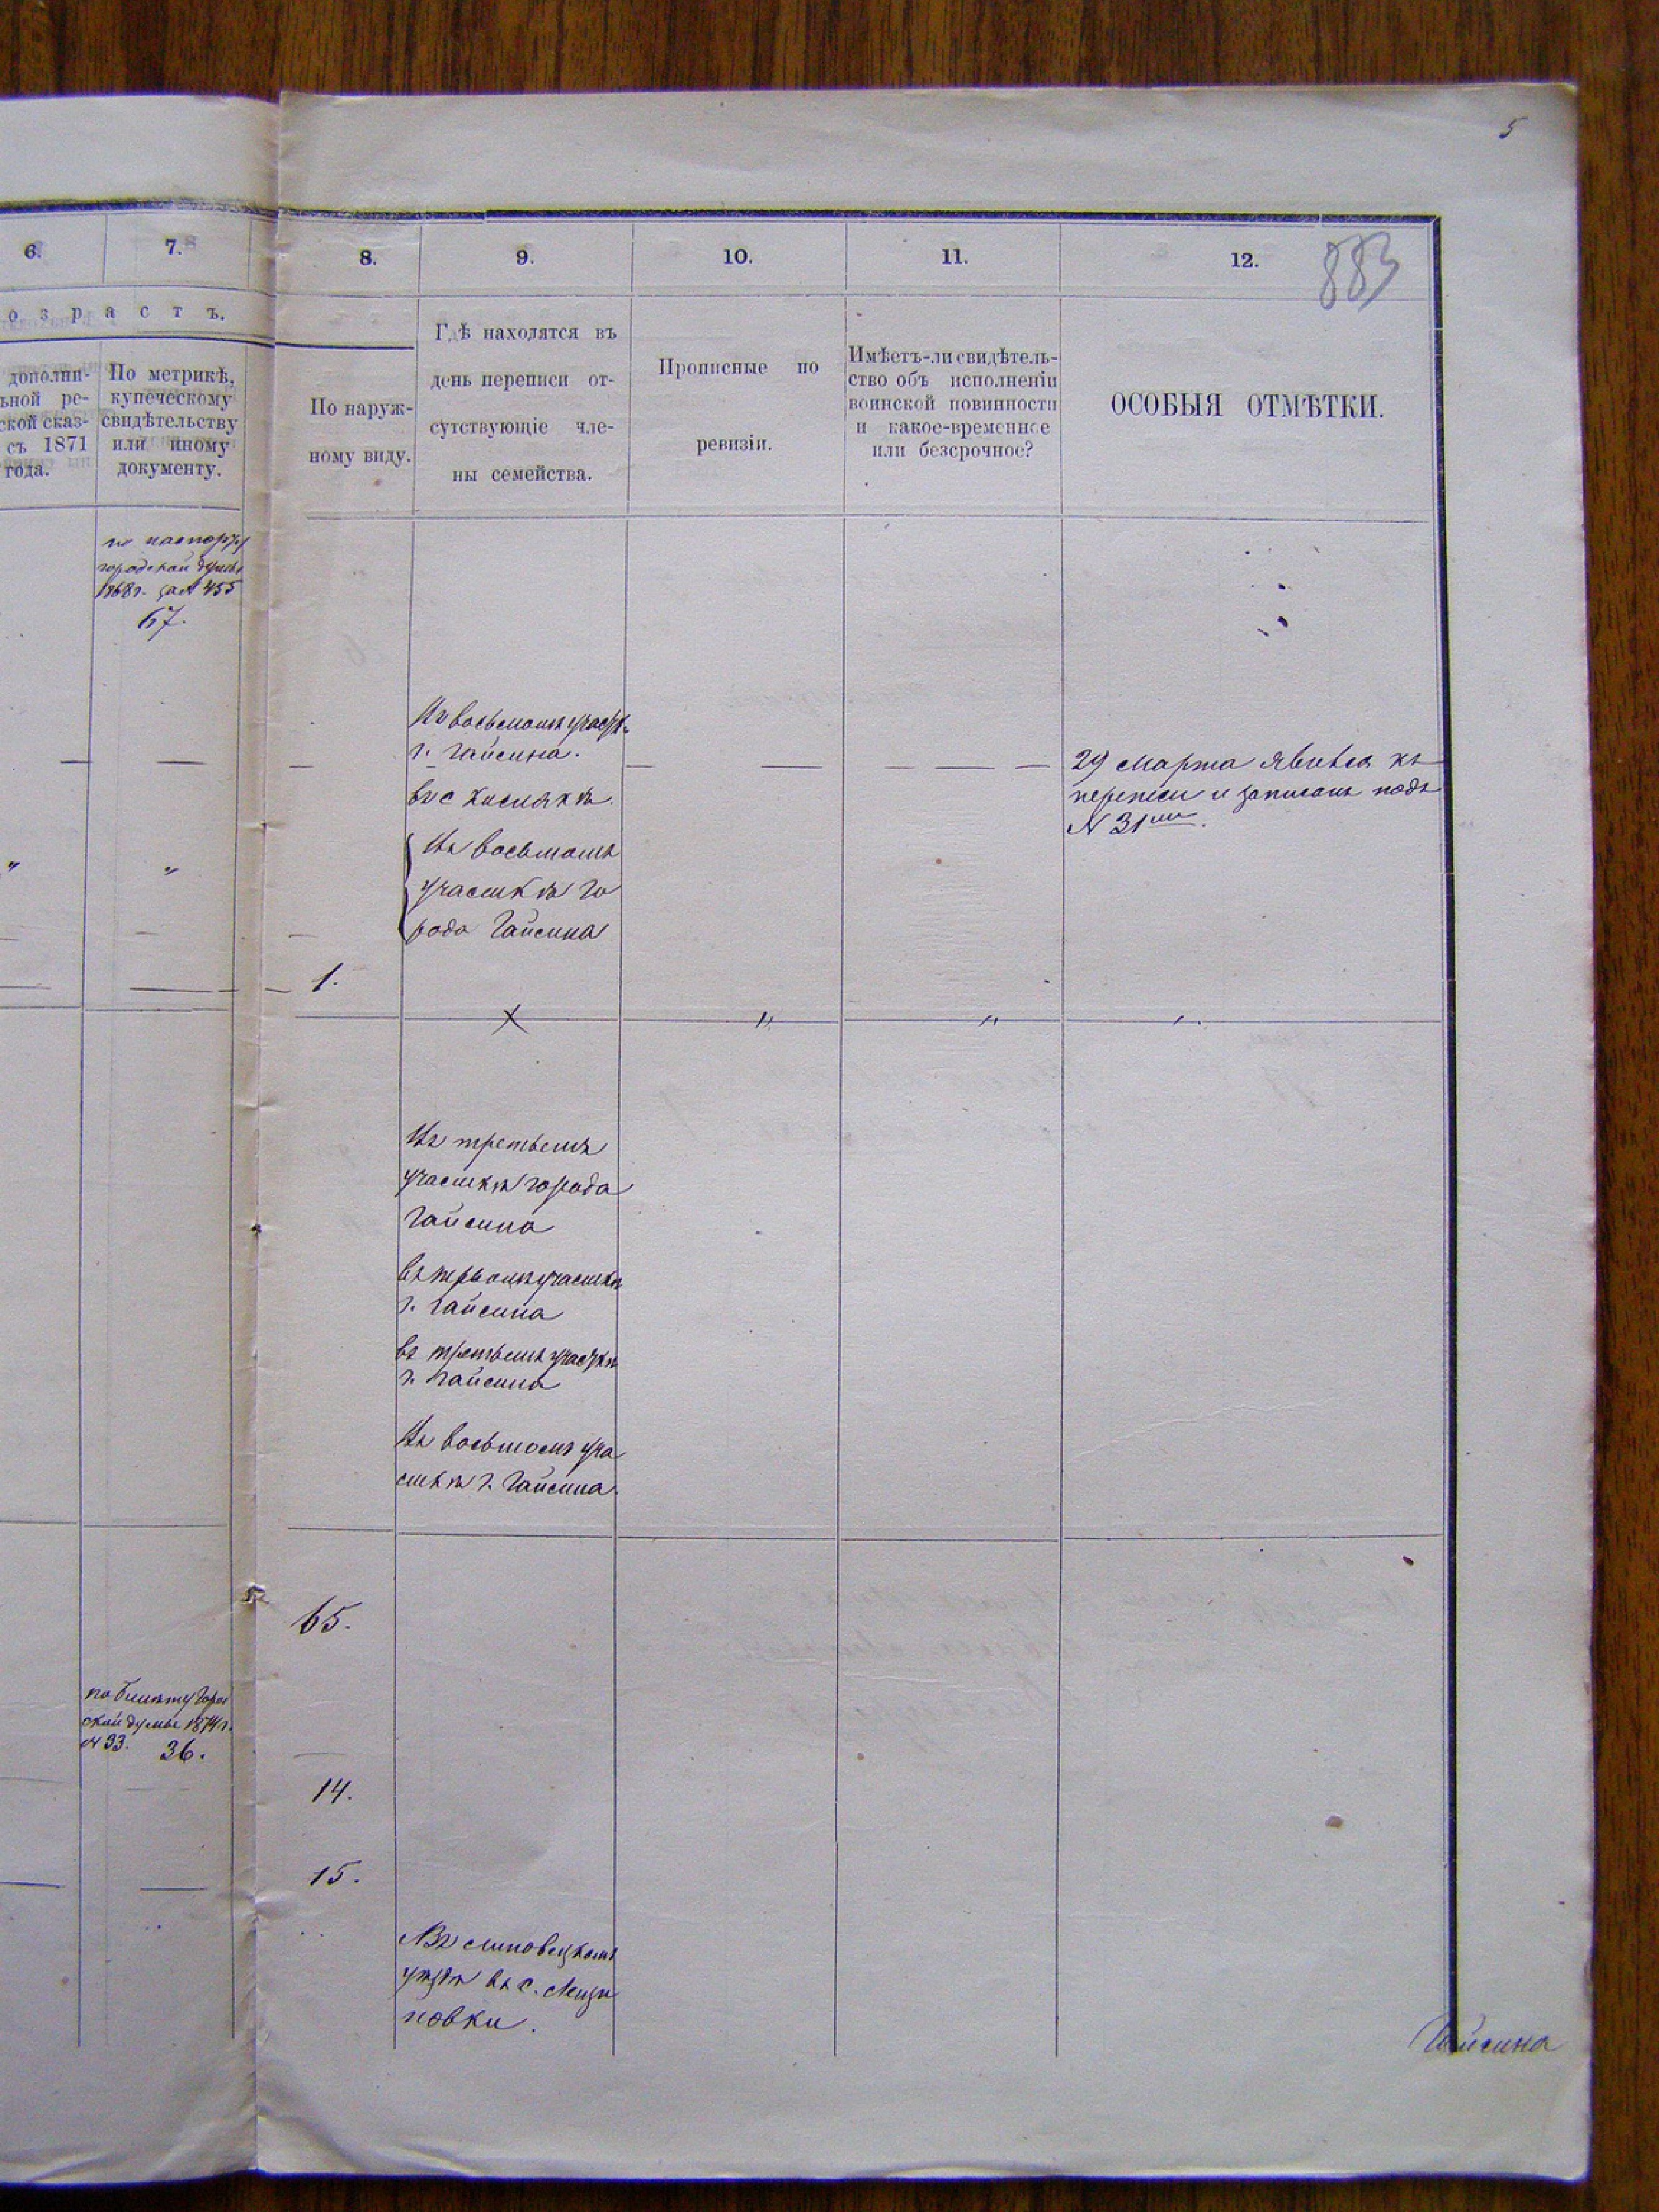 5
883
6.
7.
8.
9.
10.
11.
12.
о з р а с т ъ.
дополни-
ьной ре-
ской сказ-
съ 1871
года.
По метрикѣ,
купеческому
свидѣтельству
или иному
документу.
По наруж-
ному виду.
Гдѣ находятся въ
день переписи от-
сутствующіе чле-
ны семейства.
Прописные по
ревизіи.
Имѣетъ-ли свидѣтель-
ство объ исполненіи
воинской повинности
и какое-временное
или безсрочное?
ОСОБЫЯ ОТМѢТКИ.
по паспорту
городской думы
1868 г. за № 455
67.
Въ восьмомъ участк.
г. Гайсина.
въ с
29 марта явился къ
переписи и записанъ подъ
№ 31мъ.
Въ восьмомъ
участкѣ го
рода Гайсина
1.
Въ третьемъ
участкѣ города
Гайсина
въ первомъ участкѣ
г. Гайсина
въ третьемъ участкѣ
г. Гайсина
Въ восьмомъ уча
сткѣ г. Гайсина.
65.
по билету Город
ской думы 1874 г.
№ 33. 36.
14.
15.
Въ Липовецкомъ
уѣздѣ въ с.
новки.
Гайсина